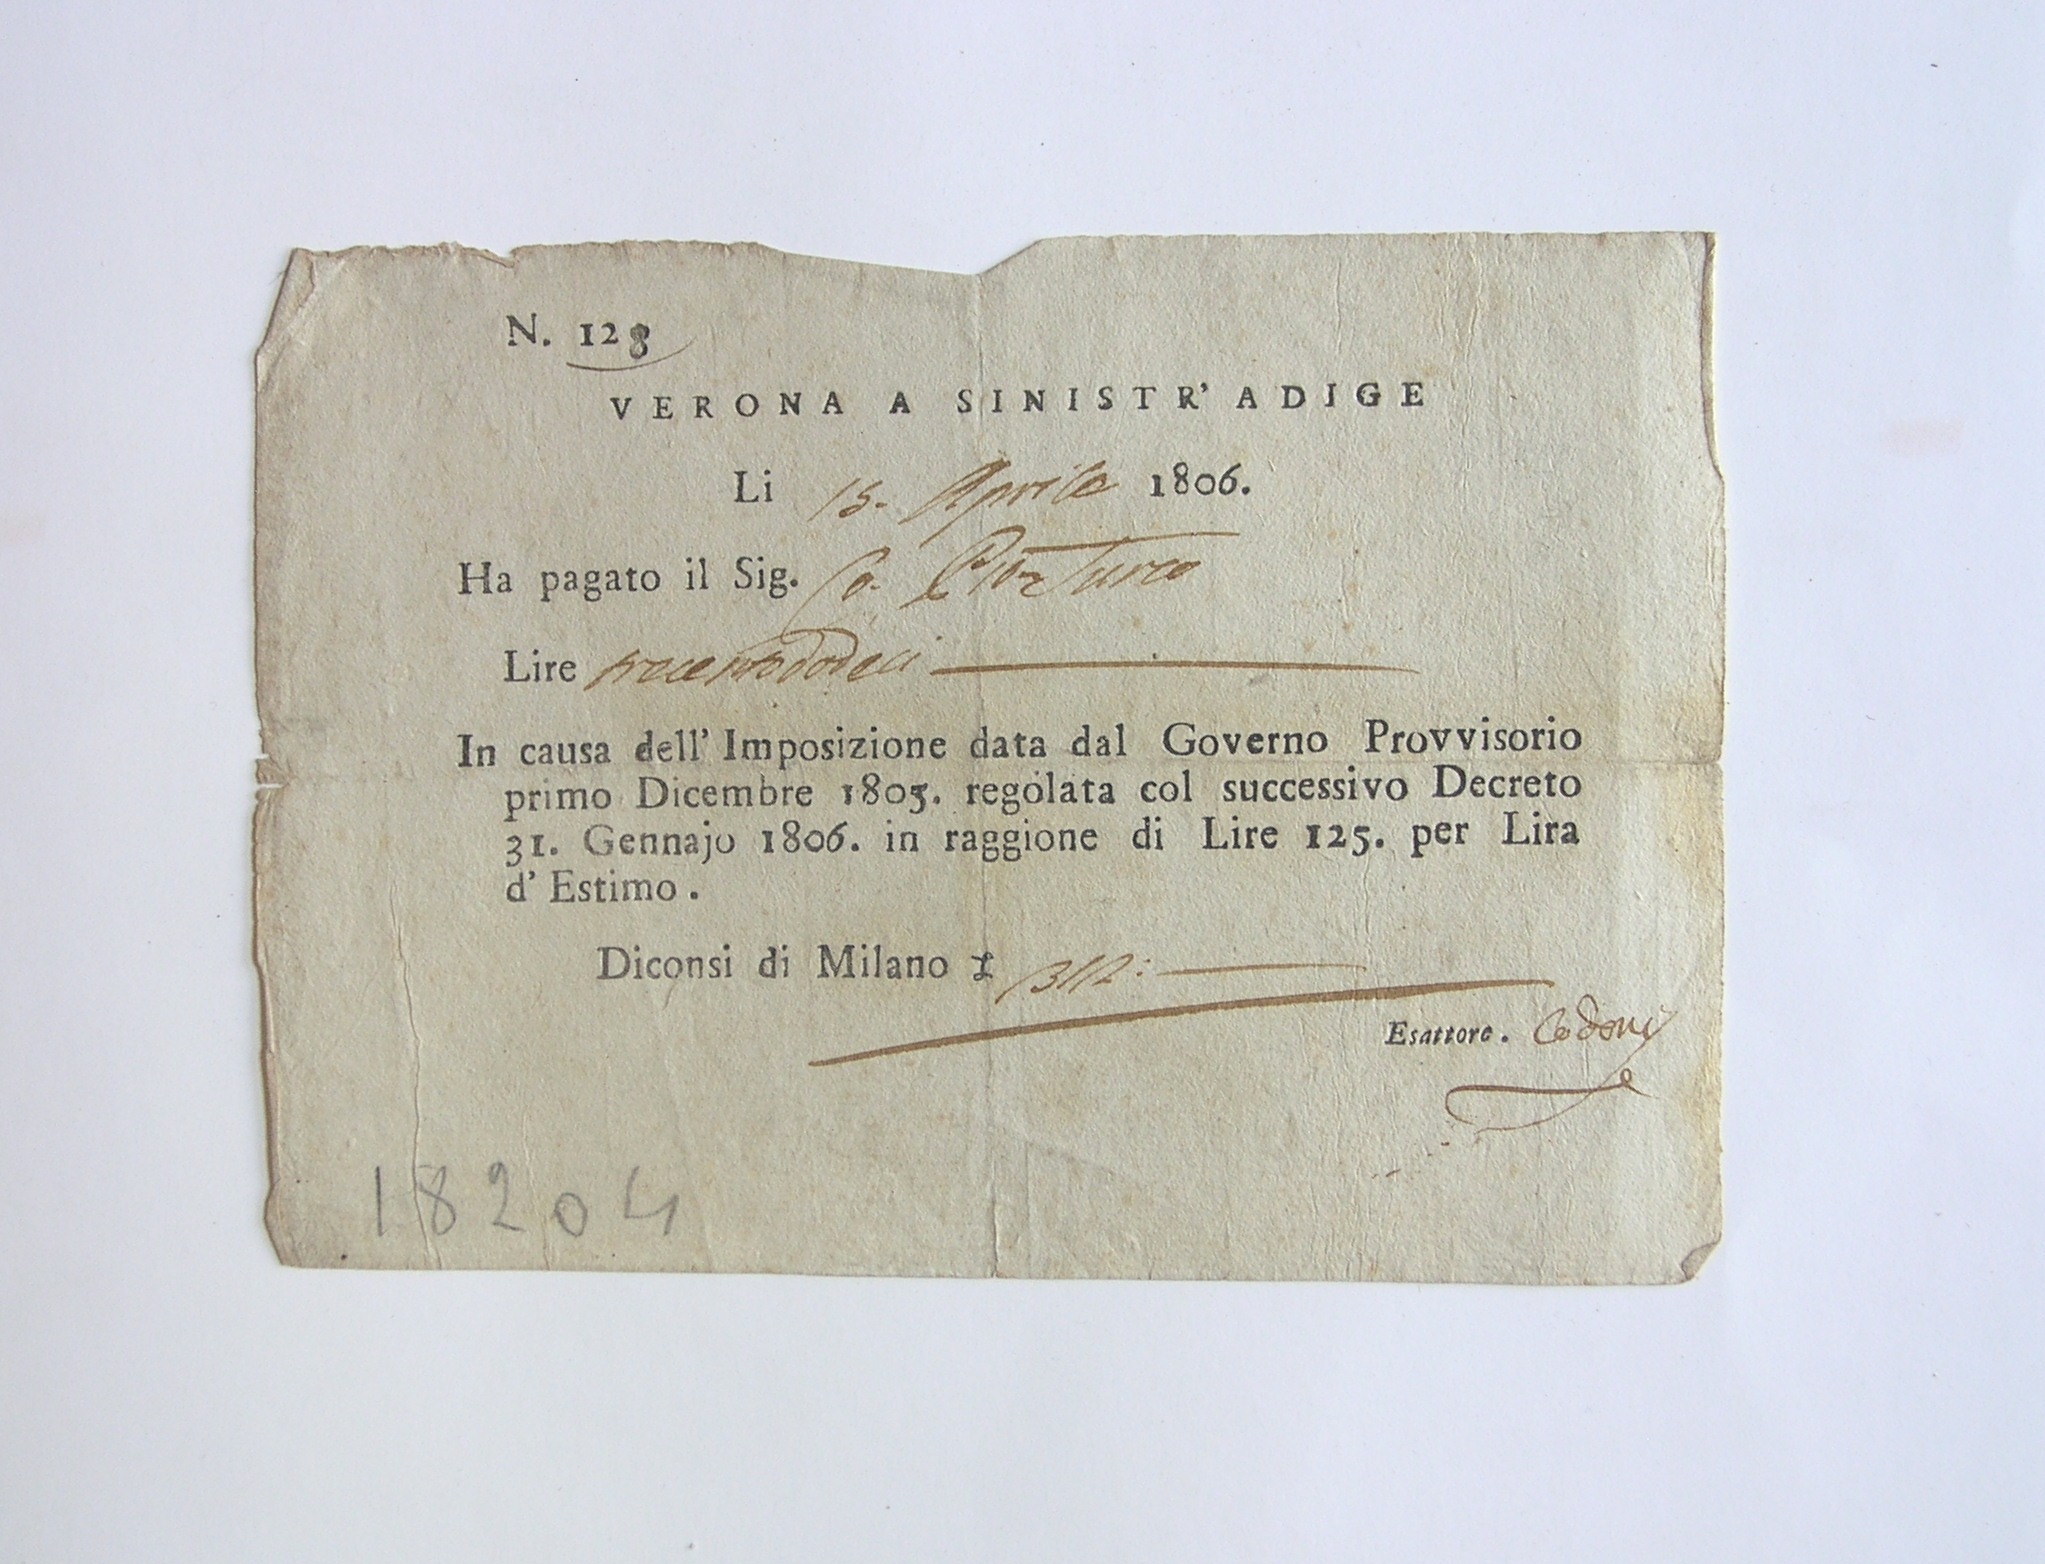 N. 128
VERONA A SINISTR' ADIGE
Li 15. Aprile 1806.
Ha pagato il Sig. Co. Pio Turco
Lire trecentododeci
In causa dell' Imposizione data dal Governo Provvisorio
primo Dicembre 1805. regolata col successivo Decreto
31. Gennajo 1806. in raggione di Lire 125. per Lira
d' Estimo.
Diconsi di Milano £ 312:
Esattore.
18204